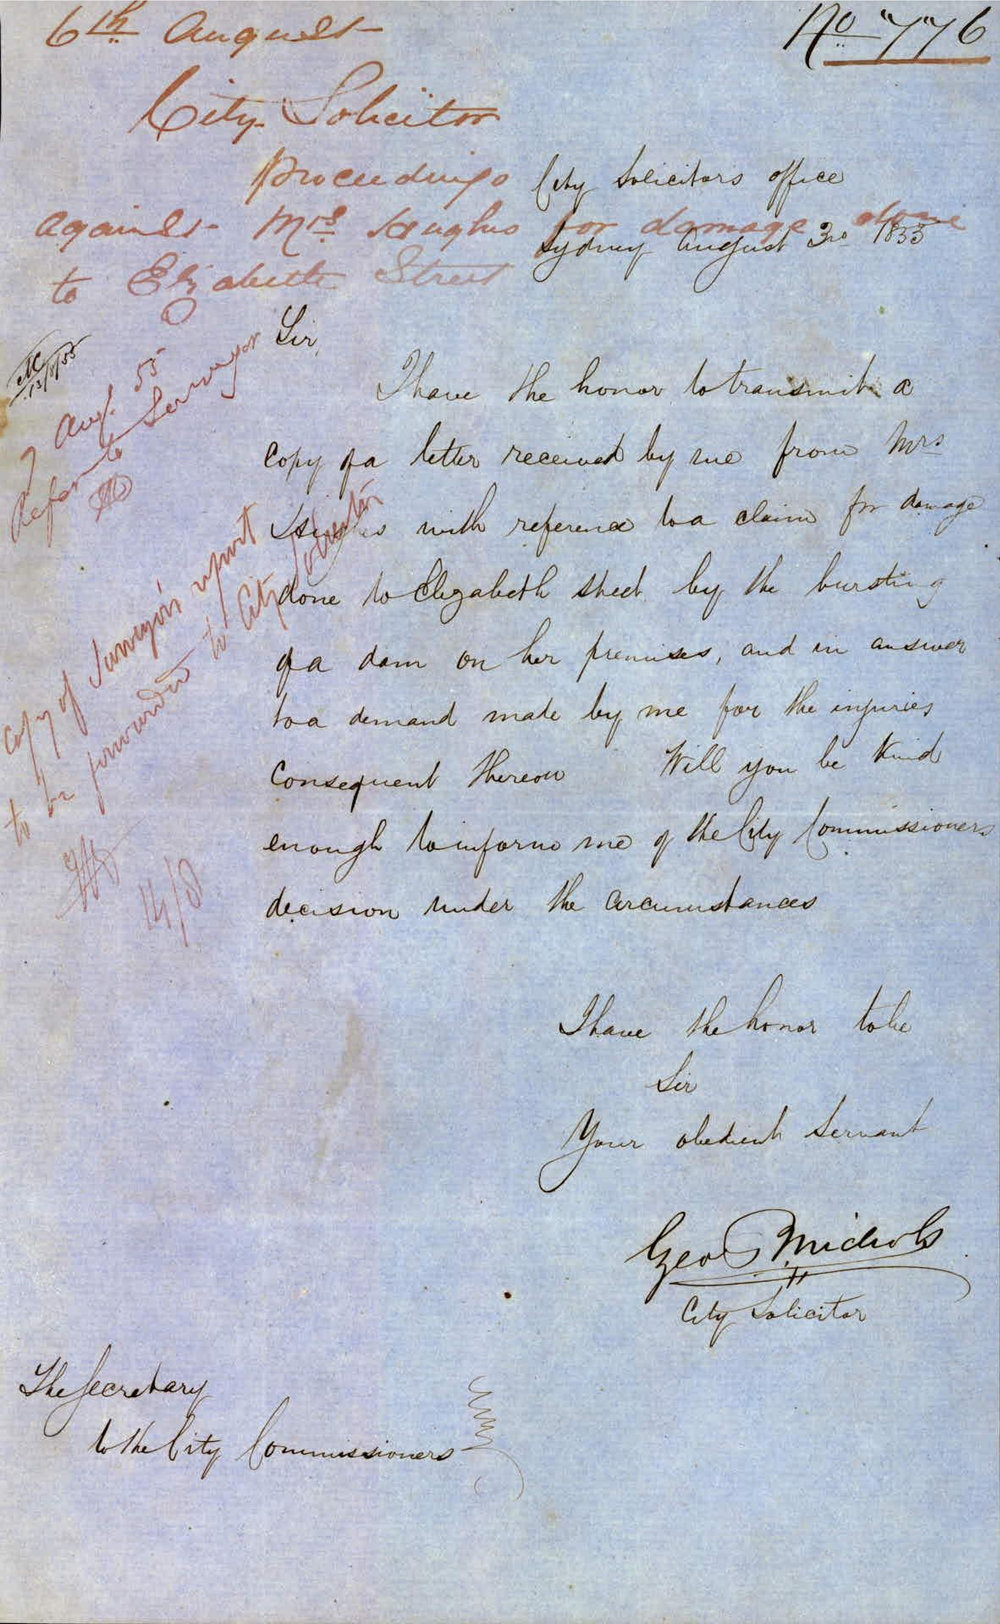 6th August
No 776
City Solicitor
proceedings
against Mrs Hughes for damage done
to Elizabeth Street
City Solicitors office
Sydney August 3rd 1855
Sir,
I have the honor to transmit a
copy of a letter received by me from Mrs
Hughes with reference to a claim for damage
done to Elizabeth Street by the bursting
of a dam on her premises, and in answer
to a demand made by me for the injuries
Consequent thereon Will you be kind
enough to inform me of the City Commissioners
decision under the circumstances
I have the honor to be
Sir
Your obedient Servant
Geo Nichols
City Solicitor
The Secretary
to the City Commissioners
13/8/55
7 Augt. 55
Refer to Surveyor
Copy of Surveyor's report
to be forwarded to City Solicitor
14/8